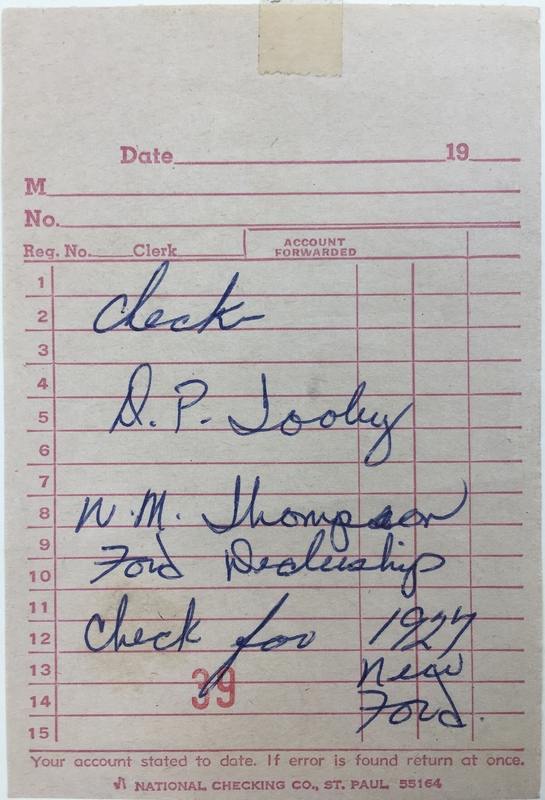 Date 19
M
No.
Reg. No. Clerk ACCOUNT FORWARDED
1
2 Check
3
4
5 D. P. Tooley
6
7
8 W. M. Thompson
9 Ford Dealership
10
11
12 Check for 1927
13 New
14 39 Ford.
15
Your account stated to date. If error is found return at once.
NATIONAL CHECKING CO., ST. PAUL 55164